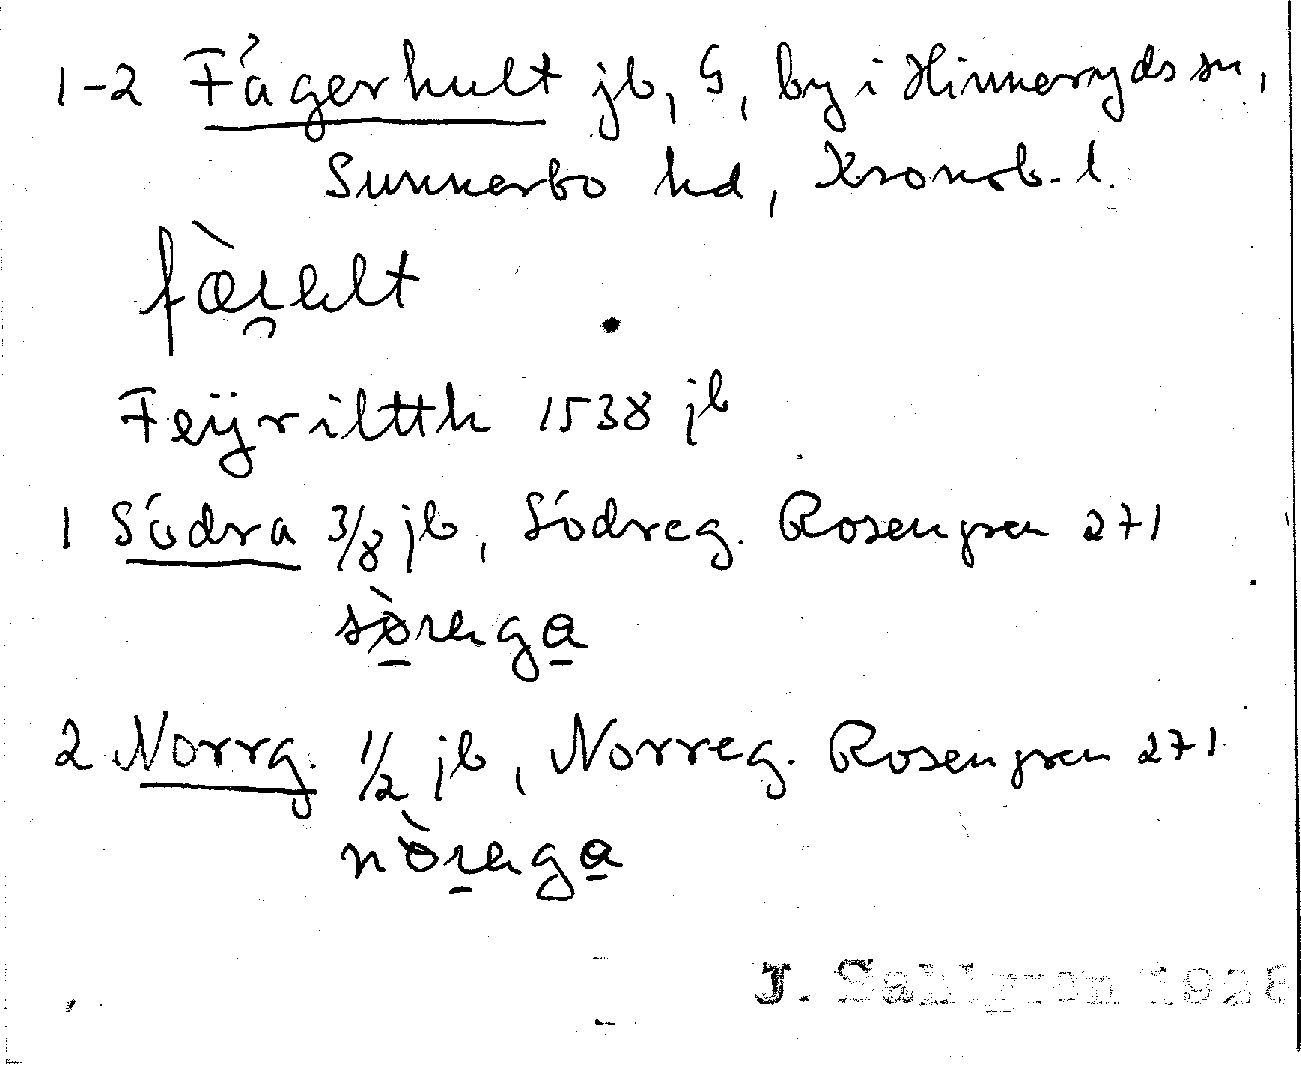 1-2 Fågerhult jb, G, by i Hinneryds sn,
Sunnerbo hd, Kronob. l.
fàɹ̯ælt
Feÿriltth 1538 jb
1 Södra 3/8 jb, Södreg. Rosengren 271
2 Norrg. 1/2 jb, Norreg. Rosengren 271
J. Sahlgren 1928